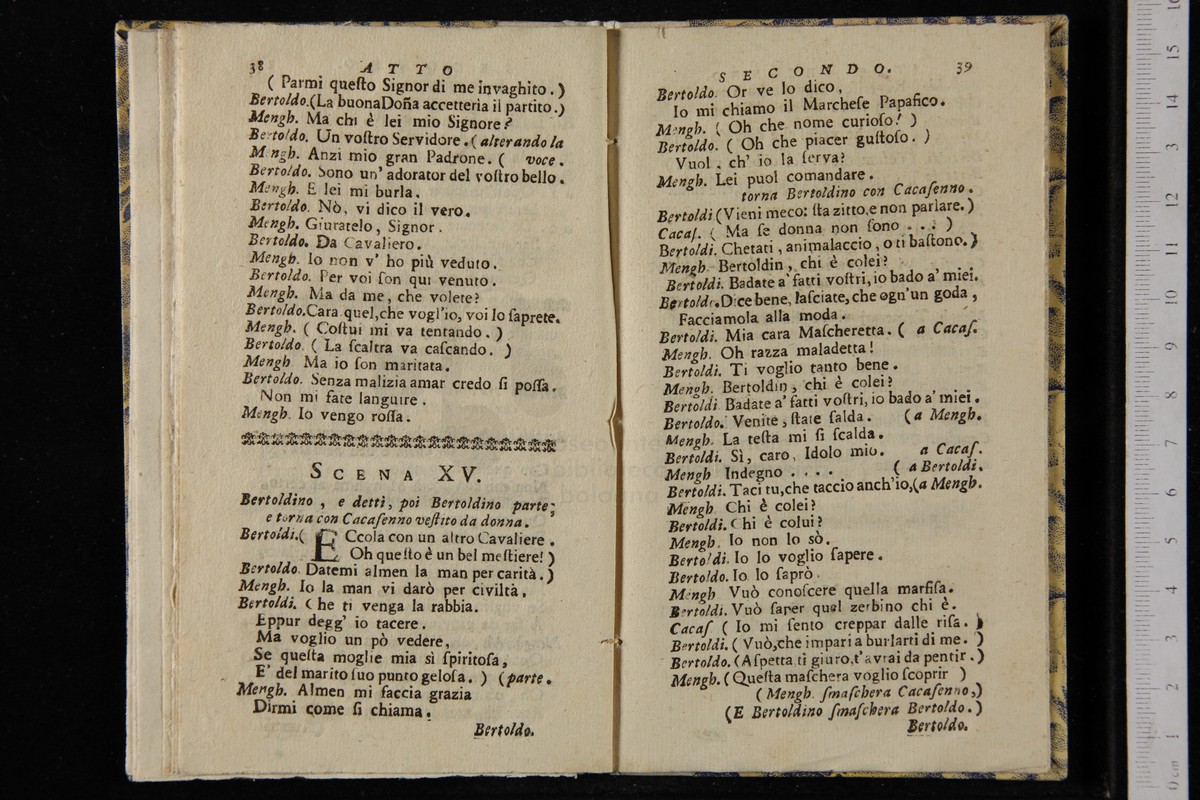 38 ATTO
( Parmi queſto Signor di me invaghito. )
Bertoldo.(La buonaDoña accetteria il partito.)
Mengh. Ma chi è lei mio Signore?
Bertoldo. Un voſtro Servidore. ( alterando la
Mengh. Anzi mio gran Padrone. ( voce.
Bertoldo. Sono un' adorator del voſtro bello.
Mengh. E lei mi burla.
Bertoldo. Nò, vi dico il vero.
Mengh. Giuratelo, Signor.
Bertoldo. Da Cavaliero.
Mengh. Io non v' ho più veduto.
Bertoldo. Per voi ſon qui venuto.
Mengh. Ma da me, che volete?
Bertoldo.Cara quel,che vogl'io, voi lo ſaprete.
Mengh. ( Coſtui mi va tentando. )
Bertoldo. ( La ſcaltra va caſcando. )
Mengh Ma io ſon maritata.
Bertoldo. Senza malizia amar credo ſi poſſa.
Non mi fate languire.
Mengh. Io vengo roſſa.
SCENA XV.
Bertoldino, e detti, poi Bertoldino parte,
e torna con Cacaſenno veſtito da donna.
Bertoldi.( ECcola con un altro Cavaliere.
Oh queſto è un bel meſtiere! )
Bertoldo. Datemi almen la man per carità. )
Mengh. Io la man vi darò per civiltà.
Bertoldi. Che ti venga la rabbia.
Eppur degg' io tacere.
Ma voglio un pò vedere,
Se queſta moglie mia sì ſpiritoſa,
E' del marito ſuo punto geloſa. ) (parte.
Mengh. Almen mi faccia grazia
Dirmi come ſi chiama.
Bertoldo.
SECONDO. 39
Bertoldo. Or ve lo dico,
Io mi chiamo il Marcheſe Papafico.
Mengh. ( Oh che nome curioſo! )
Bertoldo. ( Oh che piacer guſtoſo. )
Vuol, ch' io la ſerva?
Mengh. Lei puol comandare.
torna Bertoldino con Cacaſenno.
Bertoldi (Vieni meco: ſta zitto,e non parlare. )
Cacaſ. ( Ma ſe donna non ſono . . . )
Bertoldi. Chetati, animalaccio, o ti baſtono. )
Mengh. Bertoldin, chi è colei?
Bertoldi. Badate a' fatti voſtri, io bado a' miei.
Bertoldo.Dice bene, laſciate, che ogn'un goda,
Facciamola alla moda.
Bertoldi. Mia cara Maſcheretta. ( a Cacaſ.
Mengh. Oh razza maladetta!
Bertoldi. Ti voglio tanto bene.
Mengh. Bertoldin, chi è colei?
Bertoldi. Badate a' fatti voſtri, io bado a' miei.
Bertoldo. Venite, ſtate ſalda. (a Mengh.
Mengh. La teſta mi ſi ſcalda.
Bertoldi. Sì, caro, Idolo mio. a Cacaſ.
Mengh Indegno . . . . ( a Bertoldi.
Bertoldi. Taci tu,che taccio anch'io,(a Mengh.
Mengh Chi è colei?
Bertoldi. Chi è colui?
Mengh. Io non lo sò.
Bertoldi. Io lo voglio ſapere.
Bertoldo. Io lo ſaprò.
Mengh Vuò conoſcere quella marfiſa.
Bertoldi. Vuò ſaper quel zerbino chi è.
Cacaſ ( Io mi ſento creppar dalle riſa. )
Bertoldi. ( Vuò,che impari a burlarti di me. )
Bertoldo. (Aſpetta, ti giuro,t'avrai da pentir. )
Mengh. ( Queſta maſchera voglio ſcoprir )
( Mengh. ſmaſchera Cacaſenno,)
(E Bertoldino ſmaſchera Bertoldo. )
Bertoldo.